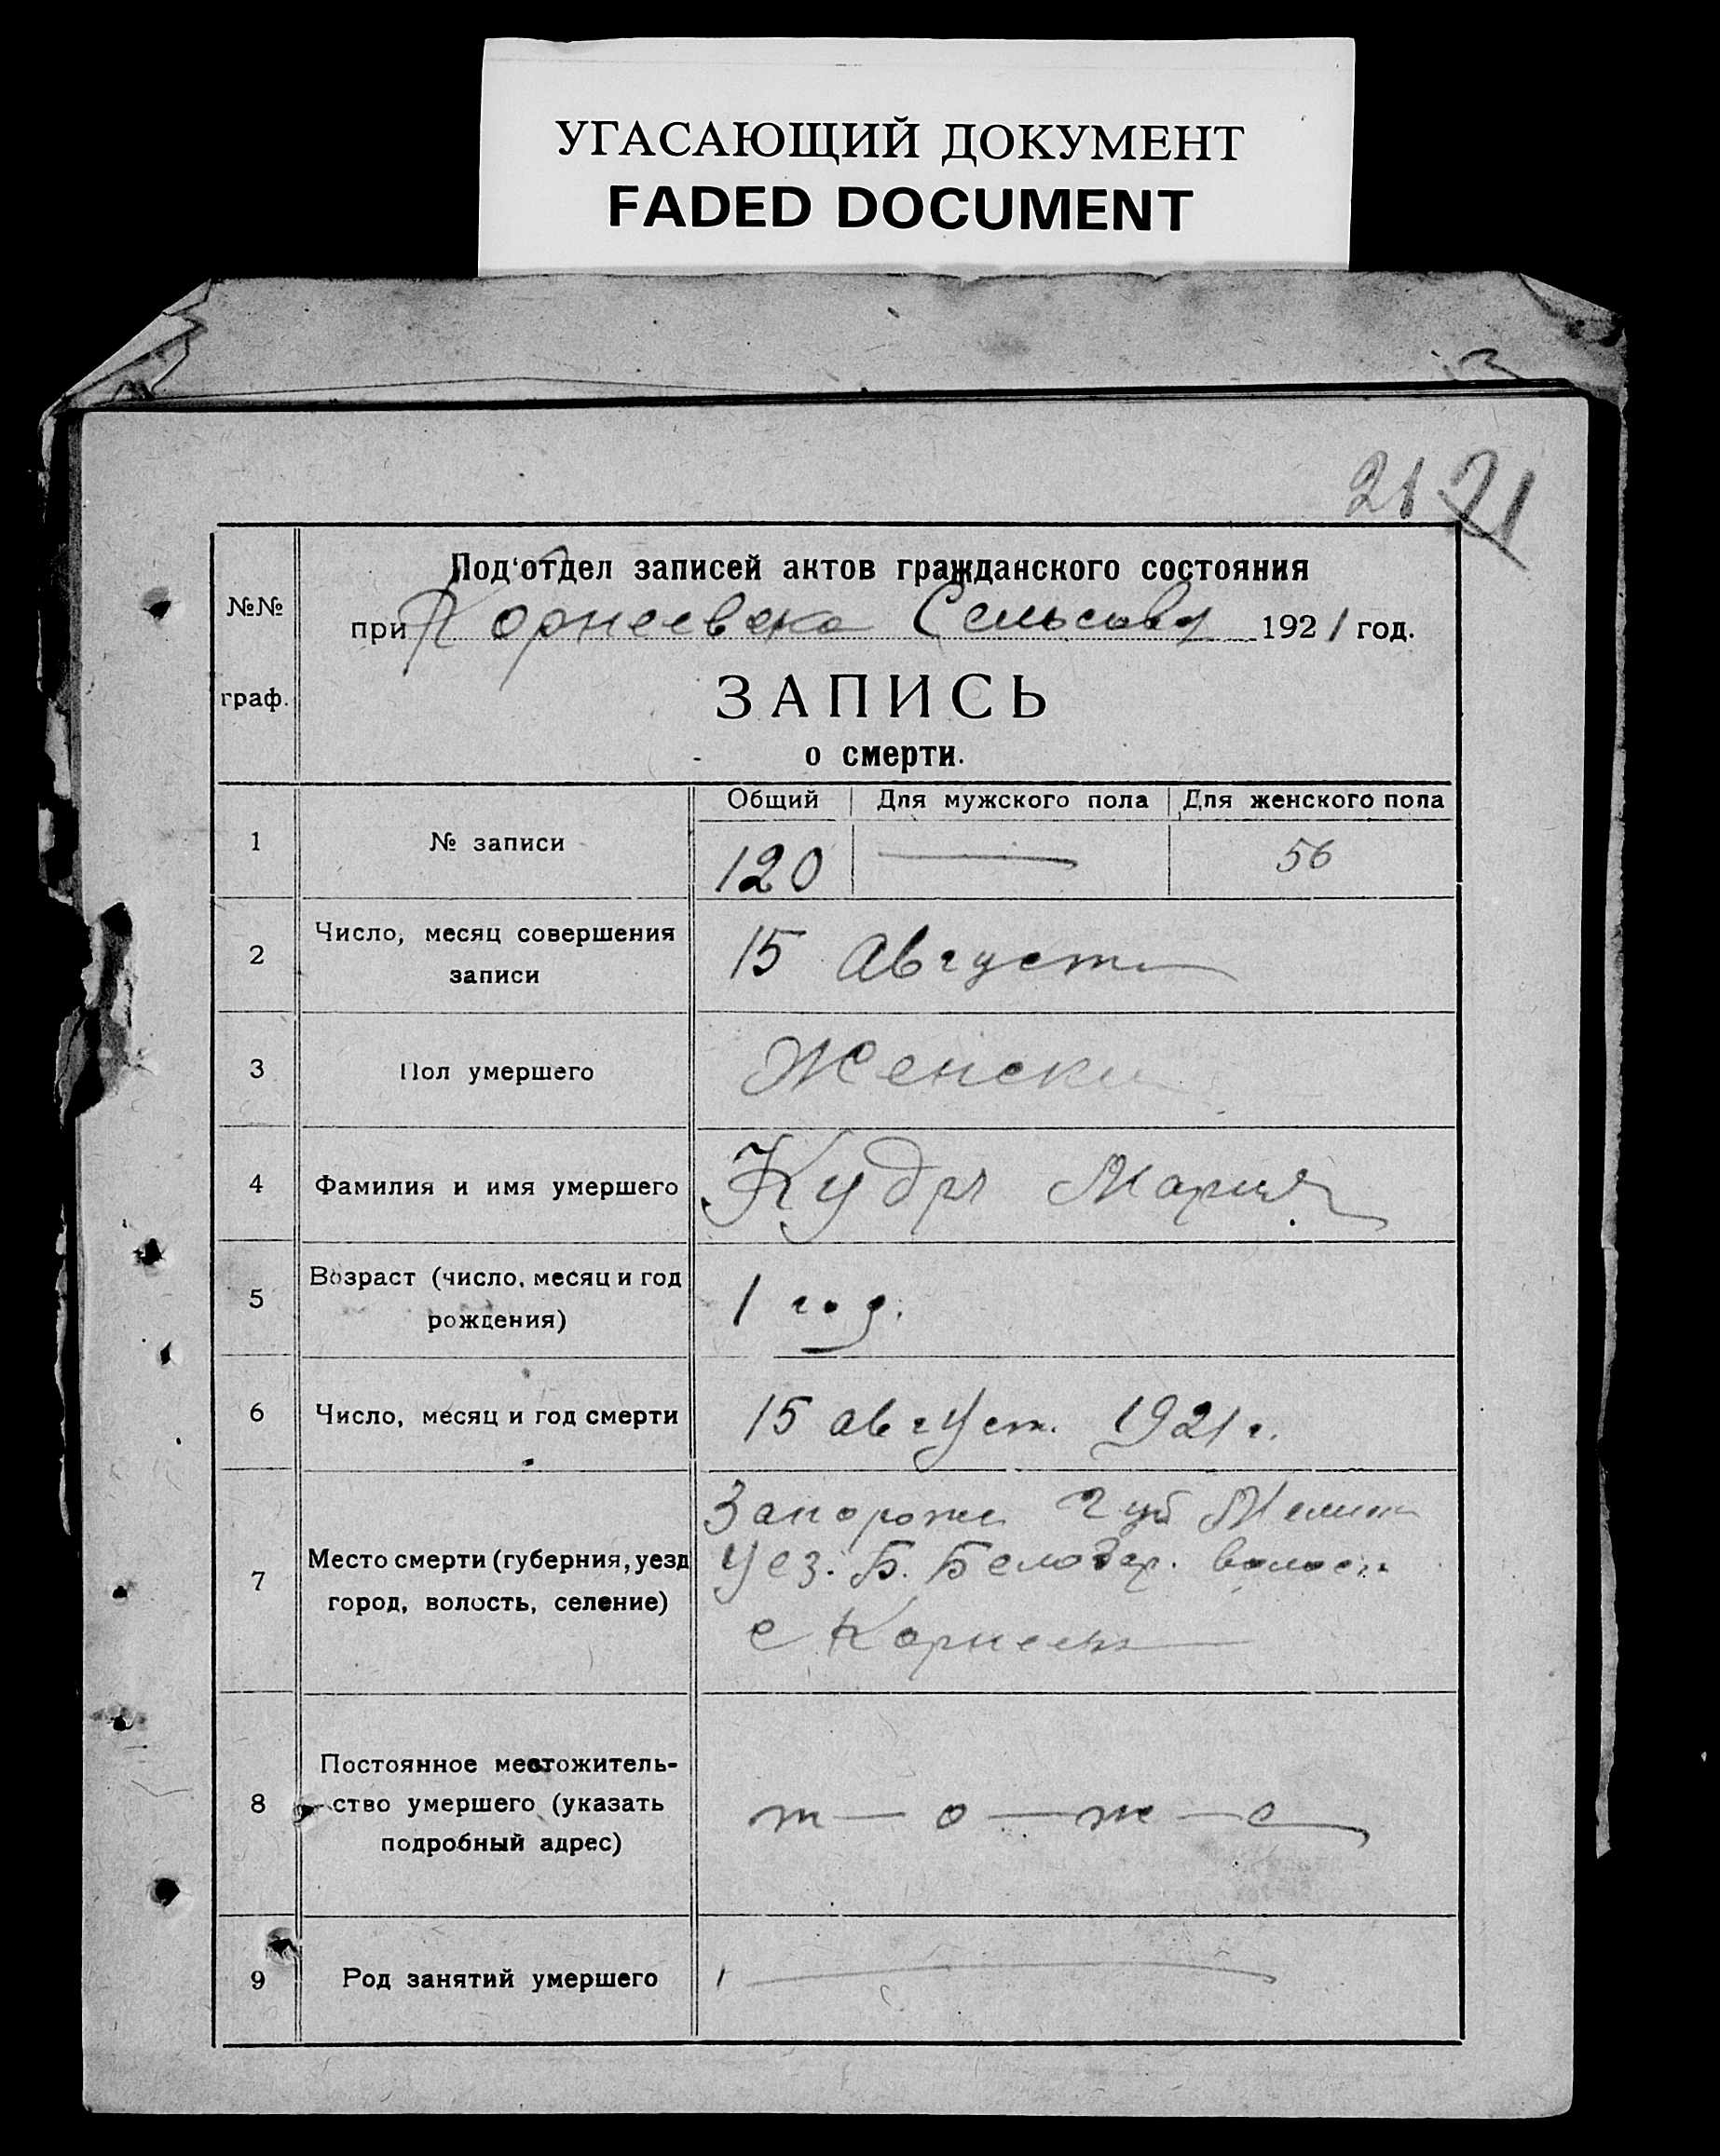 УГАСАЮЩИЙ ДОКУМЕНТ
FADED DOCUMENT
21 21
№№ граф.
Под'отдел записей актов гражданского состояния
при Корнеевско Сельсов 1921 год.
ЗАПИСЬ
о смерти.
Общий Для мужского пола Для женского пола
1 № записи 120 — 56
2 Число, месяц совершения
записи
15 Август
3 Пол умершего Женски
4 Фамилия и имя умершего Кудря Мария
5 Возраст (число, месяц и год
рождения)
1 год.
6 Число, месяц и год смерти 15 август. 1921 г.
7 Место смерти (губерния, уезд
город, волость, селение)
Запорожс Губ Мелит
Уез. Б. Белозер. волост
с Корнеевк
8 Постоянное местожитель-
ство умершего (указать
подробный адрес)
т — о — ж — е
9 Род занятий умершего —